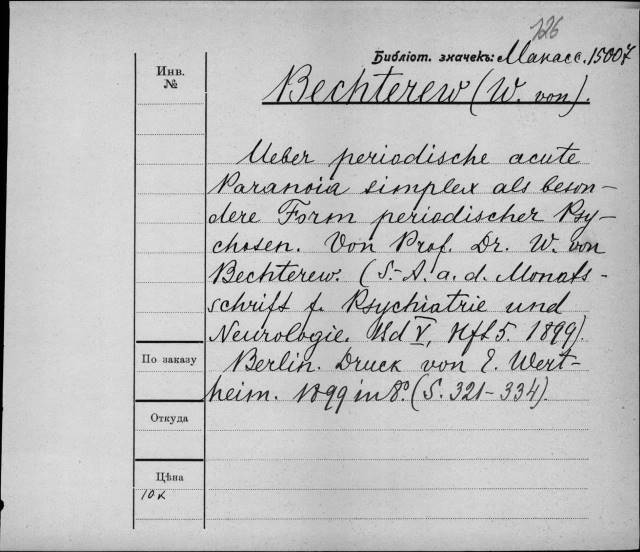 126
Библіот. значекъ: Манасс. 15007
Инв.
№
Bechterew (W. von).
Ueber periodische acute
Paranoia simplex als beson-
dere Form periodischer Psy-
chosen. Von Prof. Dr. W. von
Bechterew. (S.-A. a. d. Monats-
schrift f. Psychiatrie und
Neurologie. Bd V, Hft 5. 1899).
По заказу
Berlin. Druck von E. Wert-
heim. 1899 in 8º. (S. 321-334).
Откуда
Цѣна
10 к